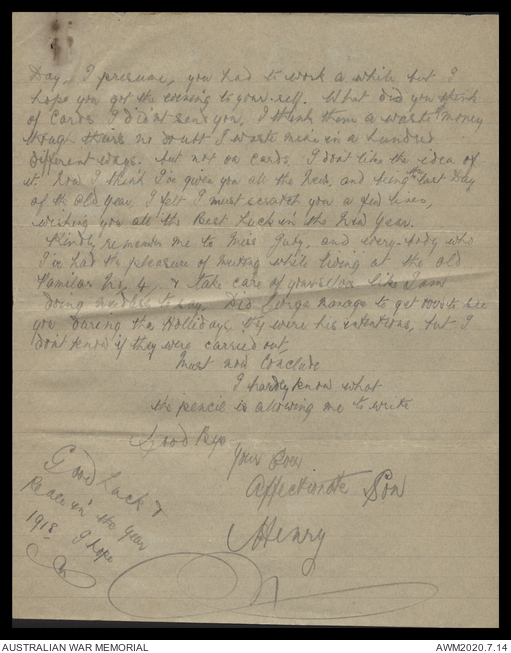 Day, I presume, you had to work a while but I
hope you got the evening to your-self. What did you think
of cards I didn't send you, I think them a waste money
though theirs no doubt I waste mine in a hundred
different ways. but not on cards. I dont like the idea of
it. Now I think I've given you all the News, and being the last Day
of the old year I felt I must scratch you a few lines,
wishing you all the Best Luck in the New Year.
Kindly remember me to Miss and every-body who
I've had the pleasure of meeting while living at the old
familar No. 4, & take care of yourselves like I am
doing needless to say. Did George manage to get to see
you during the Hollidays they were his intentions, but I
don't know if they were carried out,
Must now Conclude
I hardly know what
the pencil is allowing me to write
Good Bye
Your Ever
Affectionate Son
Henry
Good Luck &
Peace in the Year
1918 I hope
AUSTRALIAN WAR MEMORIAL
AWM2020.7.14